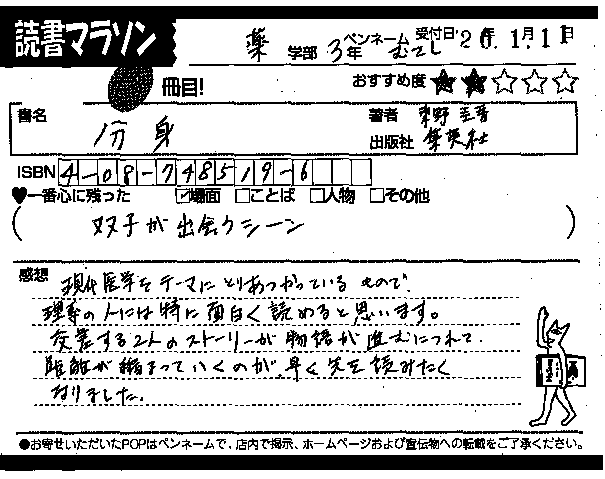 読書マラソン
薬 学部 3年 ペンネーム むてし 受付日'20年1月11日
冊目! おすすめ度 ★★☆☆☆
書名 分身 著者 東野圭吾
出版社 集英社
ISBN 4-08-748519-6
♥一番心に残った ☑場面 □ことば □人物 □その他
( 双子が出会うシーン )
感想 現代医学をテーマにとりあつかっているもので、
理系の人には特に面白く読めると思います。
交差する2人のストーリーが物語が進むにつれて、
距離が縮まっていくのが、早く先を読みたく
なりました。
●お寄せいただいたPOPはペンネームで、店内で掲示、ホームページおよび宣伝物への転載をご了承ください。